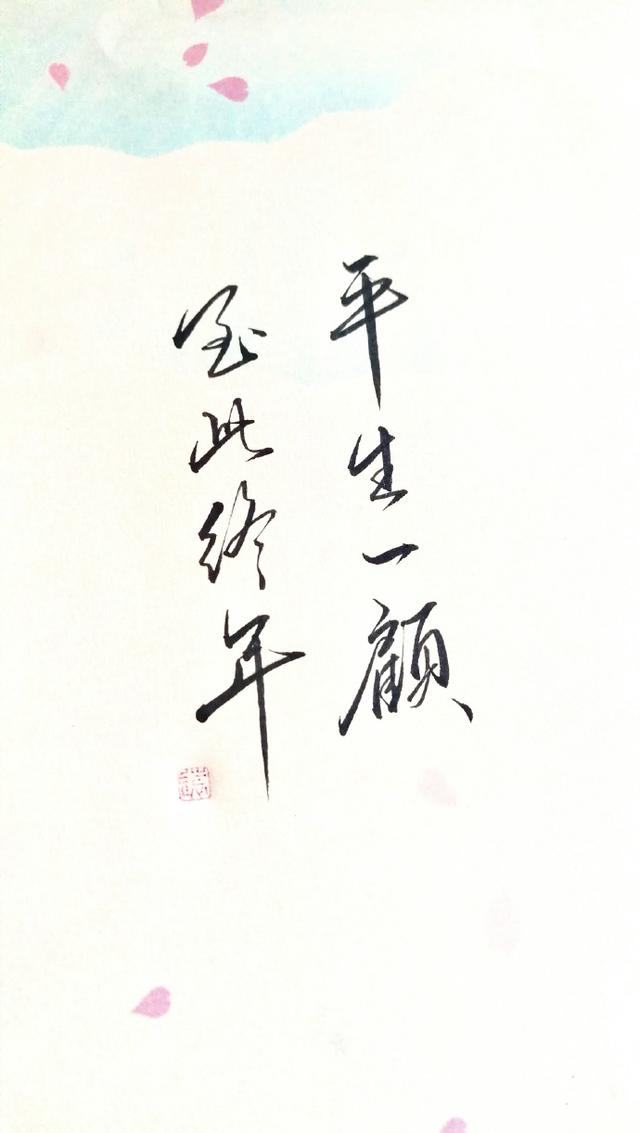 平生一顧
至此终年